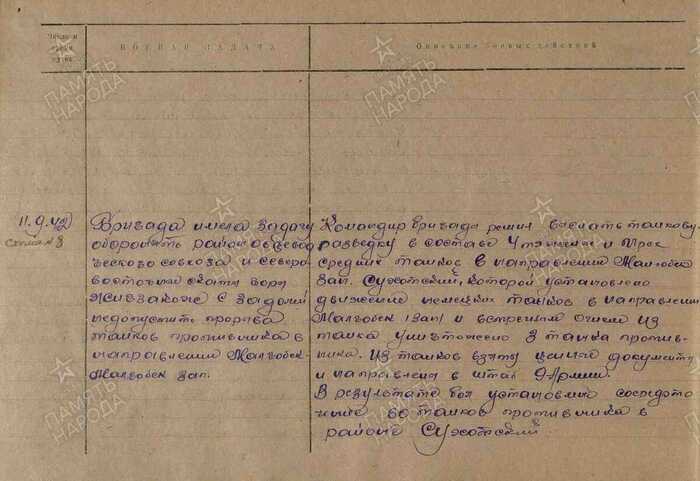 БОЕВАЯ ЗАДАЧА
Описание боевых действий
11.9.42
схема № 3
Бригада имела задачу
оборонять район
совхоза и северо
восточные скаты
с задачей
недопустить прорыва
танков противника в
направлении Малгобек-
Малгобек зап.
Командир бригады решил выслать танковую
разведку в составе 4 и трех
средних танков в направлении Малгобек
зап. Сухотский, которой установлено
движение немецких танков в направлении
Малгобек /зап/ и встречным огнем из
танка уничтожено 3 танка против-
ника. Из танков взяты ценные документы
и направлены в штаб 9-Армии.
В результате боя установлено сосредото
чение 80 танков противника в
районе Сухотский
ПАМЯТЬ
НАРОДА